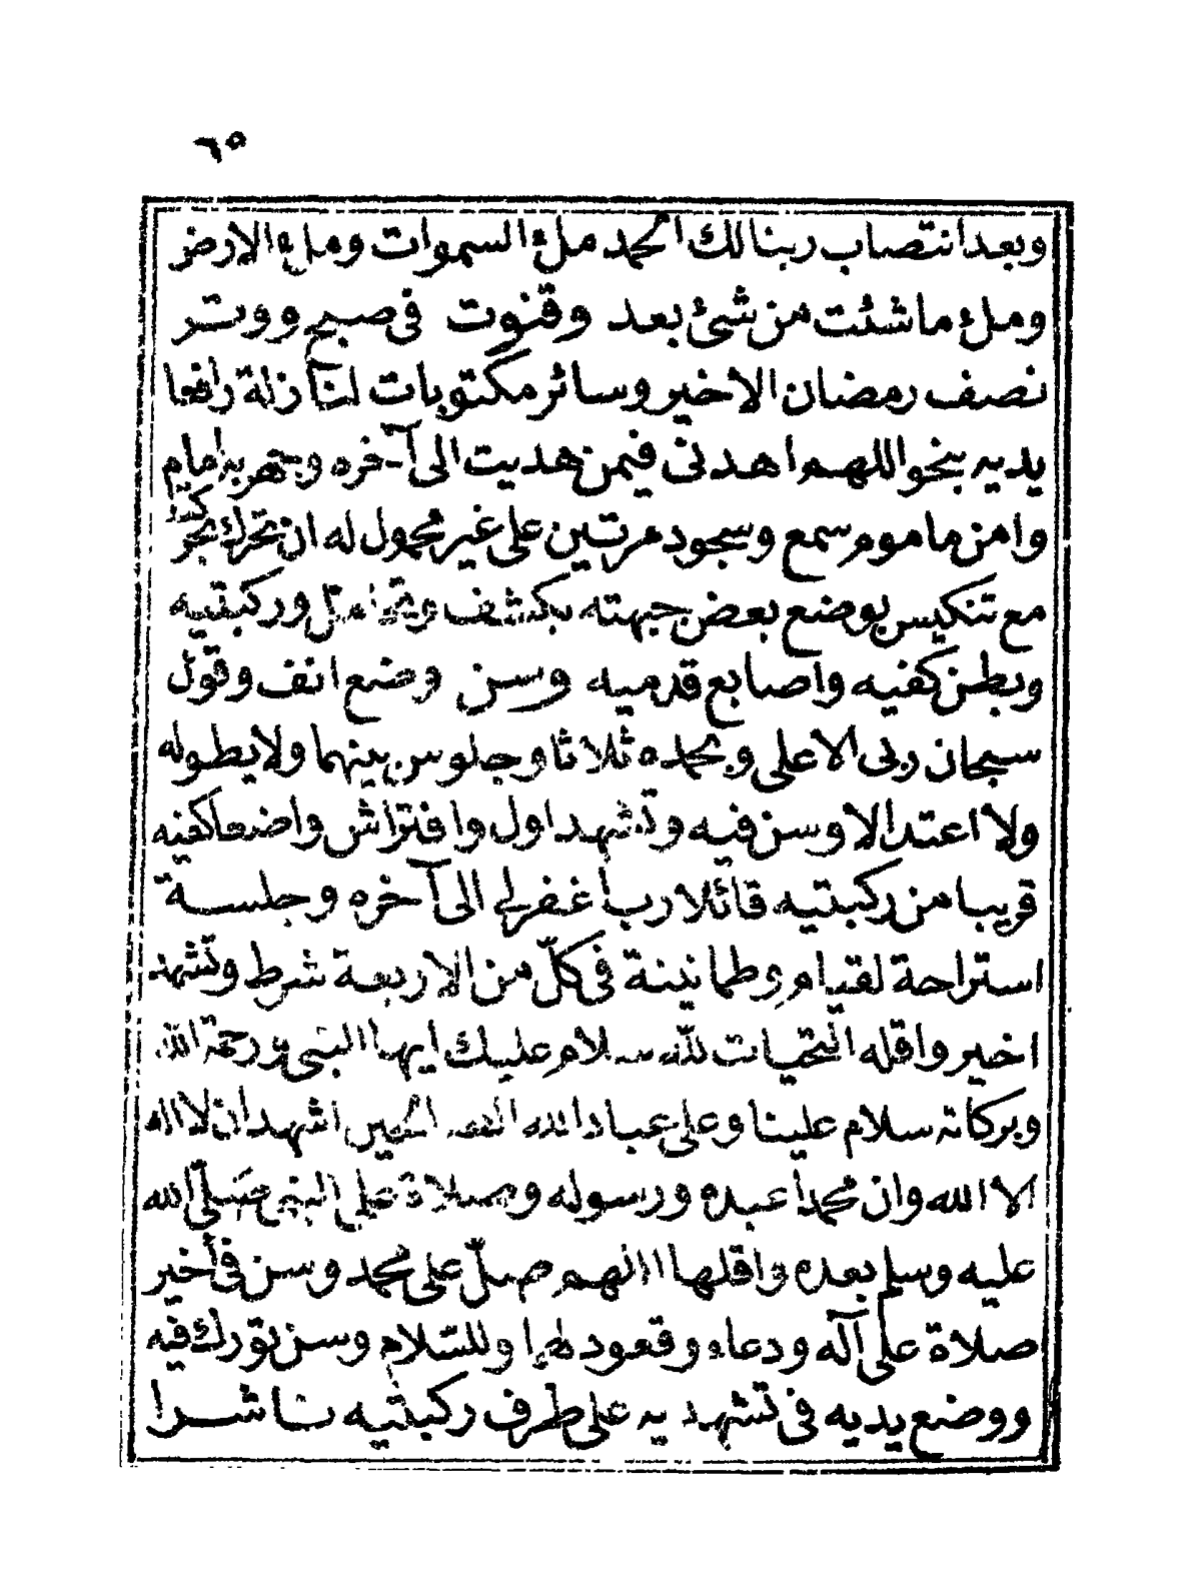 ٦٥
وبعد انتصاب ربنا لك الحمد ملء السموات وملء الارض
وملء ما شئت من شئ بعد وقنوت فى صبح ووتر
نصف رمضان الاخير وسائر مكتوبات لنازلة رافعا
يديه بنحو اللهم اهدنى فيمن هديت الى آخره وجهر به امام
وامن ماموم سمع وسجود مرتين على غير محمول له ان تحرك بحركته
مع تنكيس بوضع بعض جبهته بكشف وتحامل وركبتيه
وبطن كفيه واصابع قدميه وسن وضع انف وقول
سبحان ربى الاعلى وبحمده ثلاثا وجلوس بينهما ولا يطوله
ولا اعتدالا وسن فيه وتشهد اول وافتراش واضعا كفيه
قريبا من ركبتيه قائلا رب اغفر لى الى آخره وجلسة
استراحة لقيام وطمانينة فى كلّ من الاربعة شرط وتشهد
اخير واقله التحيات لله سلام عليك ايها النبى ورحمة الله
وبركاته سلام علينا وعلى عباد الله الصالحين اشهد ان لا اله
الا الله وان محمدا عبده ورسوله وصلاة على النبى صلّى الله
عليه وسلم بعده واقلها اللهم صلّ على محمد وسن فى أخير
صلاة على آله ودعاء وقعود لهما وللسّلام وسن تورك فيه
ووضع يديه فى تشهديه على طرف ركبتيه ناشرا